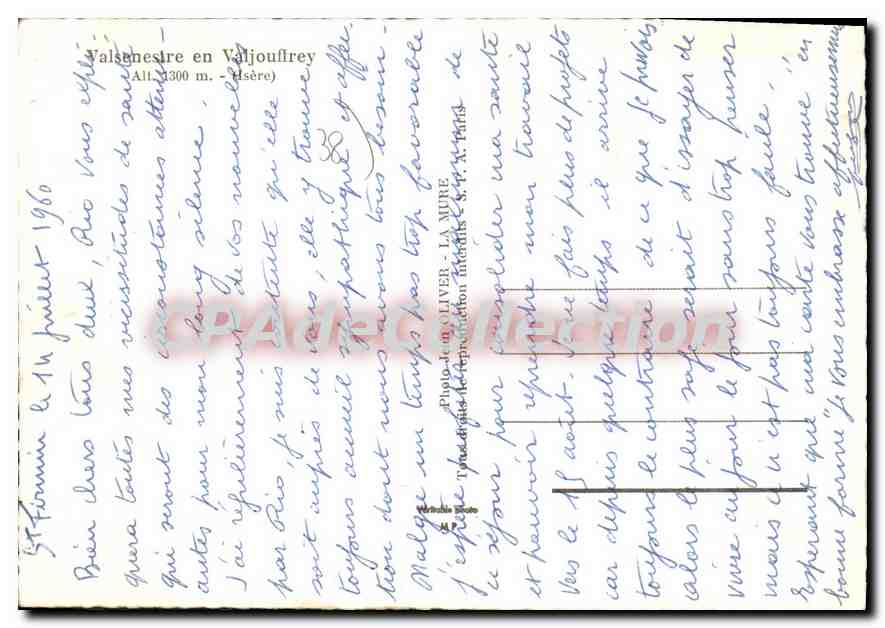 Valsenestre en Valjouffrey
Alt. 1300 m. - (Isère)
St Firmin le 14 juillet 1960
Bien chers tous deux, Rio vous expli-
quera toutes mes vicissitudes de santé
qui seront des circonstances attenu-
antes pour mon long silence.
J'ai régulièrement de vos nouvelles
par Rio, je suis contente qu'elle
soit auprès de vous, elle y trouve
toujours accueil sympathique et affec-
tion dont nous avons tous besoin -
Malgré un temps pas trop favorable
j'espère de
ce séjour pour consolider ma santé
et pouvoir reprendre mon travail
vers le 15 août. Je ne fais plus de projets
car depuis quelque temps il arrive
toujours le contraire de ce que je prévois
alors le plus sage serait d'essayer de
vivre au jour le jour sans trop penser
mais ce n'est pas toujours facile.
Esperant que ma carte vous trouve "en
bonne forme" je vous embrasse affectueusement
Photo-Jean OLIVER - LA MURE
Tous droits de reproduction interdits - S. P. A. Paris
Véritable photo
CPAdeCollection